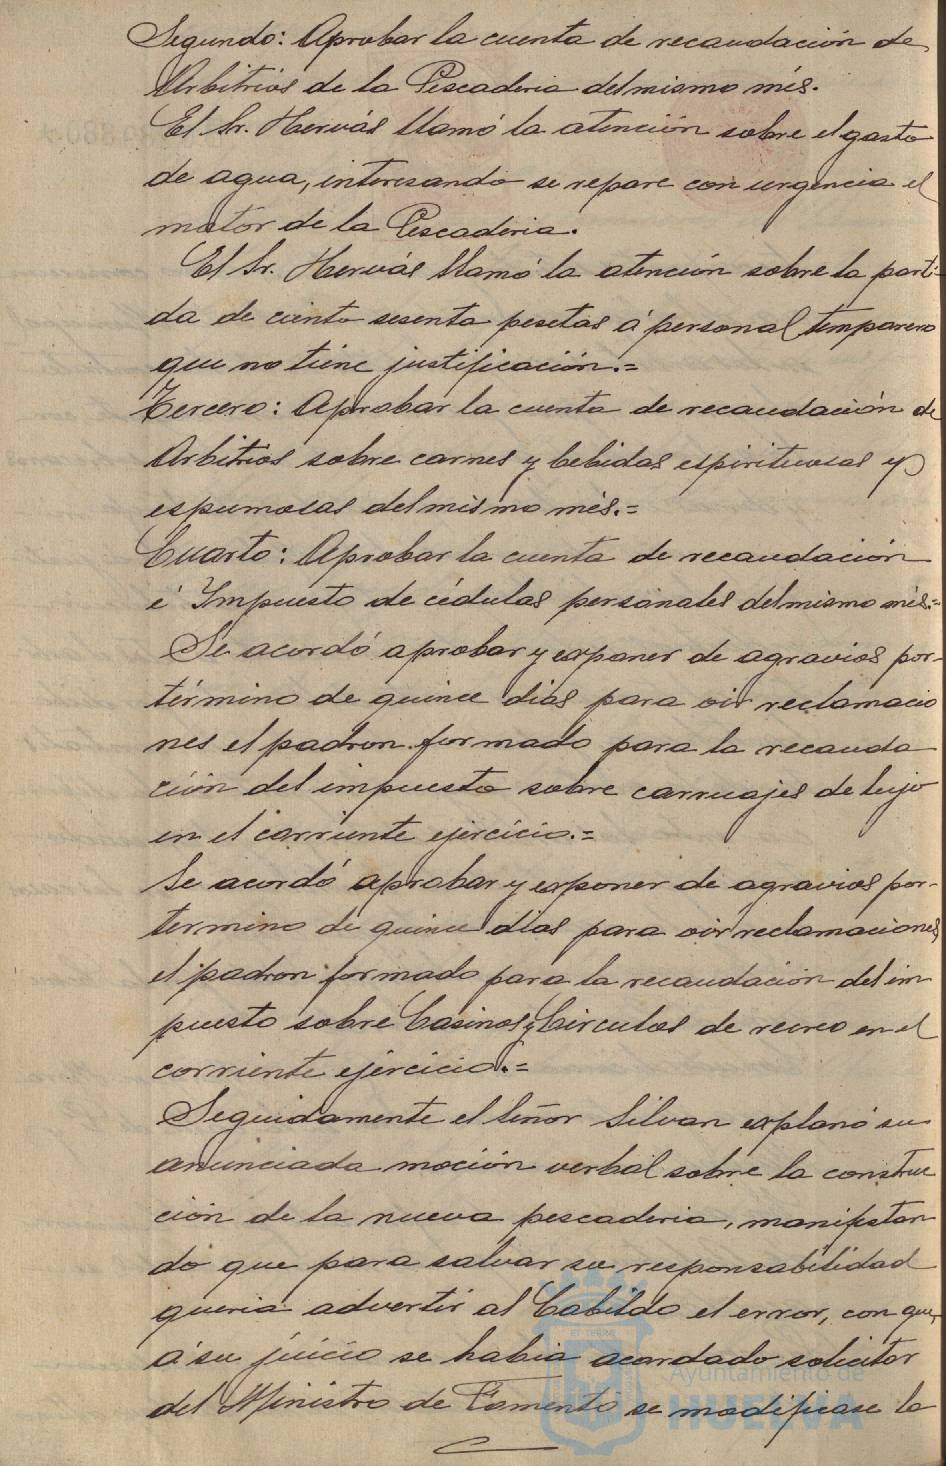 Segundo: Aprobar la cuenta de recaudación de
Arbitrios de la Pescaderia del mismo més.
El Sr. Hervás llamó la atención sobre el gasto
de agua, interesando se repare con urgencia el
motór de la Pescaderia.
El Sr. Hervás llamó la atención sobre la parti-
da de ciento sesenta pesetas á personal temporero
que no tiene justificación.=
Tercero: Aprobar la cuenta de recaudación de
Arbitrios sobre carnes y bebidas espirituosas y
espumosas del mismo més.=
Cuarto: Aprobar la cuenta de recaudación
é Impuesto de cédulas personales del mismo més.=
Se acordó aprobar y exponer de agravios por-
término de quince dias para oir reclamacio
nes el padron formado para la recauda
ción del impuesto sobre carruajes de lujo
en el corriente ejercicio.=
Se acordó aprobar y exponer de agravios por-
termino de quince dias para oir reclamaciones
el padron formado para la recaudación del im
puesto sobre Casinos y Circulos de recreo en el
corriente ejercicio.=
Seguidamente el Señor Silvan explanó su
anunciada moción verbal sobre la construc
ción de la nueva pescaderia, manifestan
do que para salvar su responsabilidad
queria advertir al Cabildo el error, con que,
á su juicio se habia acordado solicitar
del Ministro de Fomento se modificase la
Ayuntamiento de
HUELVA